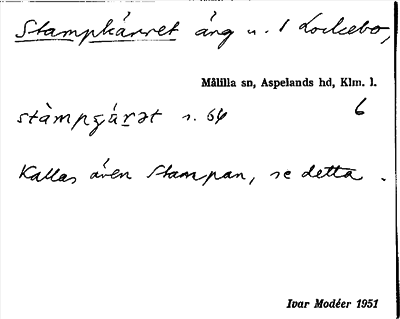 Stampkärret äng u. 1 Lockebo,
Målilla sn, Aspelands hd, Klm. l.
stàmpçárət s. 64 6
Kallas även Stampan, se detta.
Ivar Modéer 1951